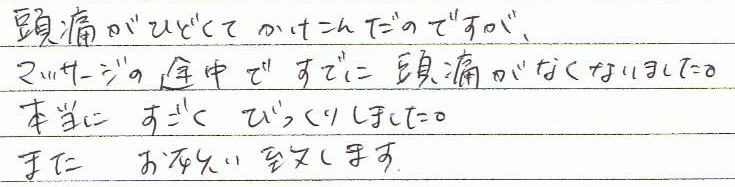 頭痛がひどくてかけこんだのですが、
マッサージの途中ですでに頭痛がなくなりました。
本当にすごくびっくりしました。
またお願い致します。